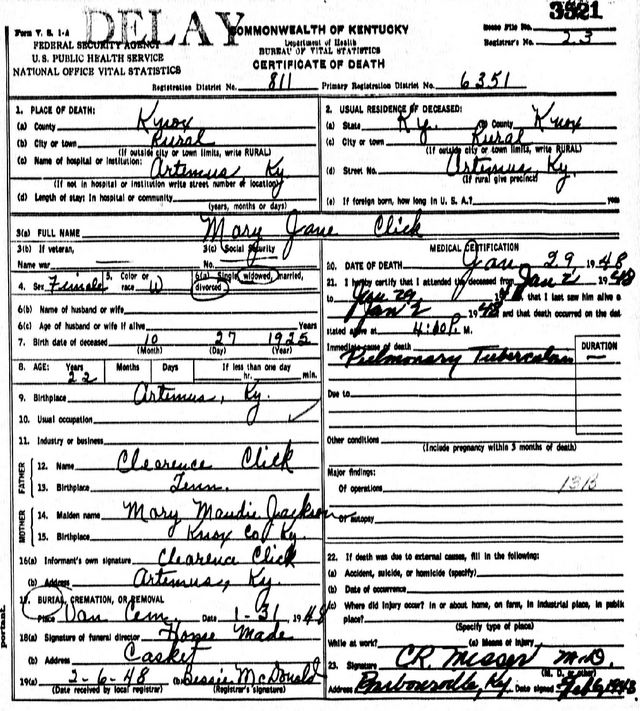 DELAY
3321
Form V. S. 1-A
COMMONWEALTH OF KENTUCKY
FEDERAL SECURITY AGENCY
Department of Health
U. S. PUBLIC HEALTH SERVICE
BUREAU OF VITAL STATISTICS
Registrar's No. 23
NATIONAL OFFICE VITAL STATISTICS
CERTIFICATE OF DEATH
Registration District No. 811 Primary Registration District No. 6351
1. PLACE OF DEATH:
(a) County Knox
(b) City or town Rural
(If outside city or town limits, write RURAL)
(c) Name of hospital or institution: Artemus, Ky
(If not in hospital or institution write street number or location)
(d) Length of stay: In hospital or community
(years, months or days)
2. USUAL RESIDENCE OF DECEASED:
(a) State Ky. (b) County Knox
(c) City or town Rural
(If outside city or town limits, write RURAL)
(d) Street No. Artemus, Ky.
(If rural give precinct)
(e) If foreign born, how long in U. S. A.? years
3(a) FULL NAME Mary Jane Click
3(b) If veteran,
Name war
3(c) Social Security
No.
4. Sex Female
5. Color or race W
6(a) Single, widowed, married, divorced
6(b) Name of husband or wife
6(c) Age of husband or wife if alive Years
7. Birth date of deceased 10 27 1925
(Month) (Day) (Year)
8. AGE: Years Months Days If less than one day
22 hr. min.
9. Birthplace Artemus, Ky.
10. Usual occupation
11. Industry or business
FATHER
12. Name Clearence Click
13. Birthplace Tenn.
MOTHER
14. Maiden name Mary Maudie Jackson
15. Birthplace Knox Co Ky.
16(a) Informant's own signature Clearence Click
(b) Address Artemus, Ky.
17. BURIAL, CREMATION, OR REMOVAL
Place Van Cem. Date 1-31 1948
18(a) Signature of funeral director Home Made
(b) Address Casket
19(a) 2-6-48 (b) Bessie McDonald
(Date received by local registrar) (Registrar's signature)
MEDICAL CERTIFICATION
20. DATE OF DEATH Jan 29, 1948
21. I hereby certify that I attended the deceased from Jan 2
to Jan 29 1948 that I last saw him alive
Jan 2 1948 and that death occurred on the dat
stated above at 4:00 P. M.
Immediate cause of death
DURATION
Pulmonary Tuberculosis
Due to
Other conditions
(Include pregnancy within 3 months of death)
Major findings:
Of operations 13B
Of autopsy
22. If death was due to external causes, fill in the following:
(a) Accident, suicide, or homicide (specify)
(b) Date of occurrence
(c) Where did injury occur? In or about home, on farm, in industrial place, in public
place?
(Specify type of place)
While at work? (e) Means of Injury
23. Signature CR. Messer M.D.
(M. D. or other)
Address Barbourville, Ky. Date signed Feb 6 1948
portant.